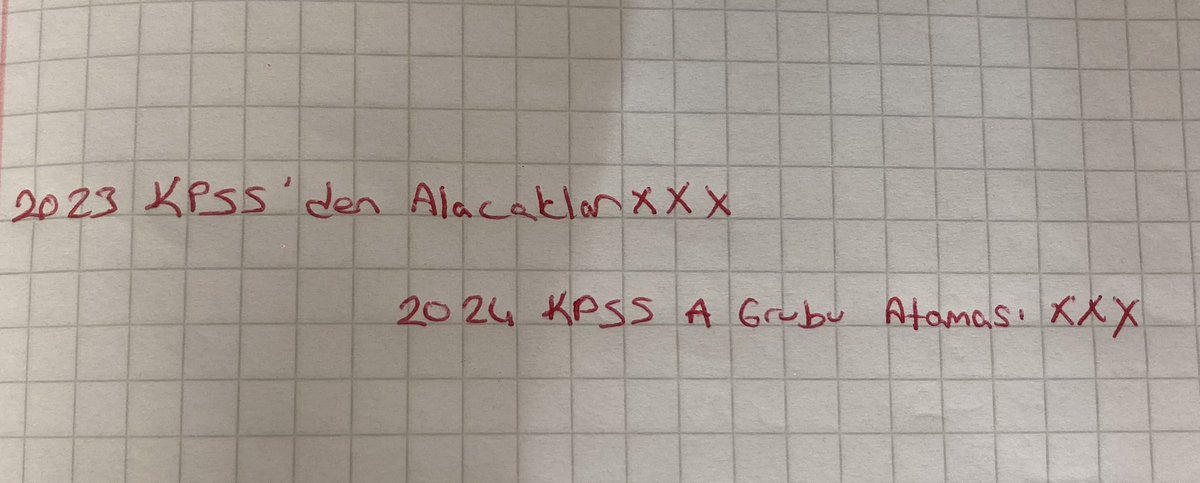 2023 KPSS'den Alacakları XXX
2024 KPSS A Grubu Ataması XXX